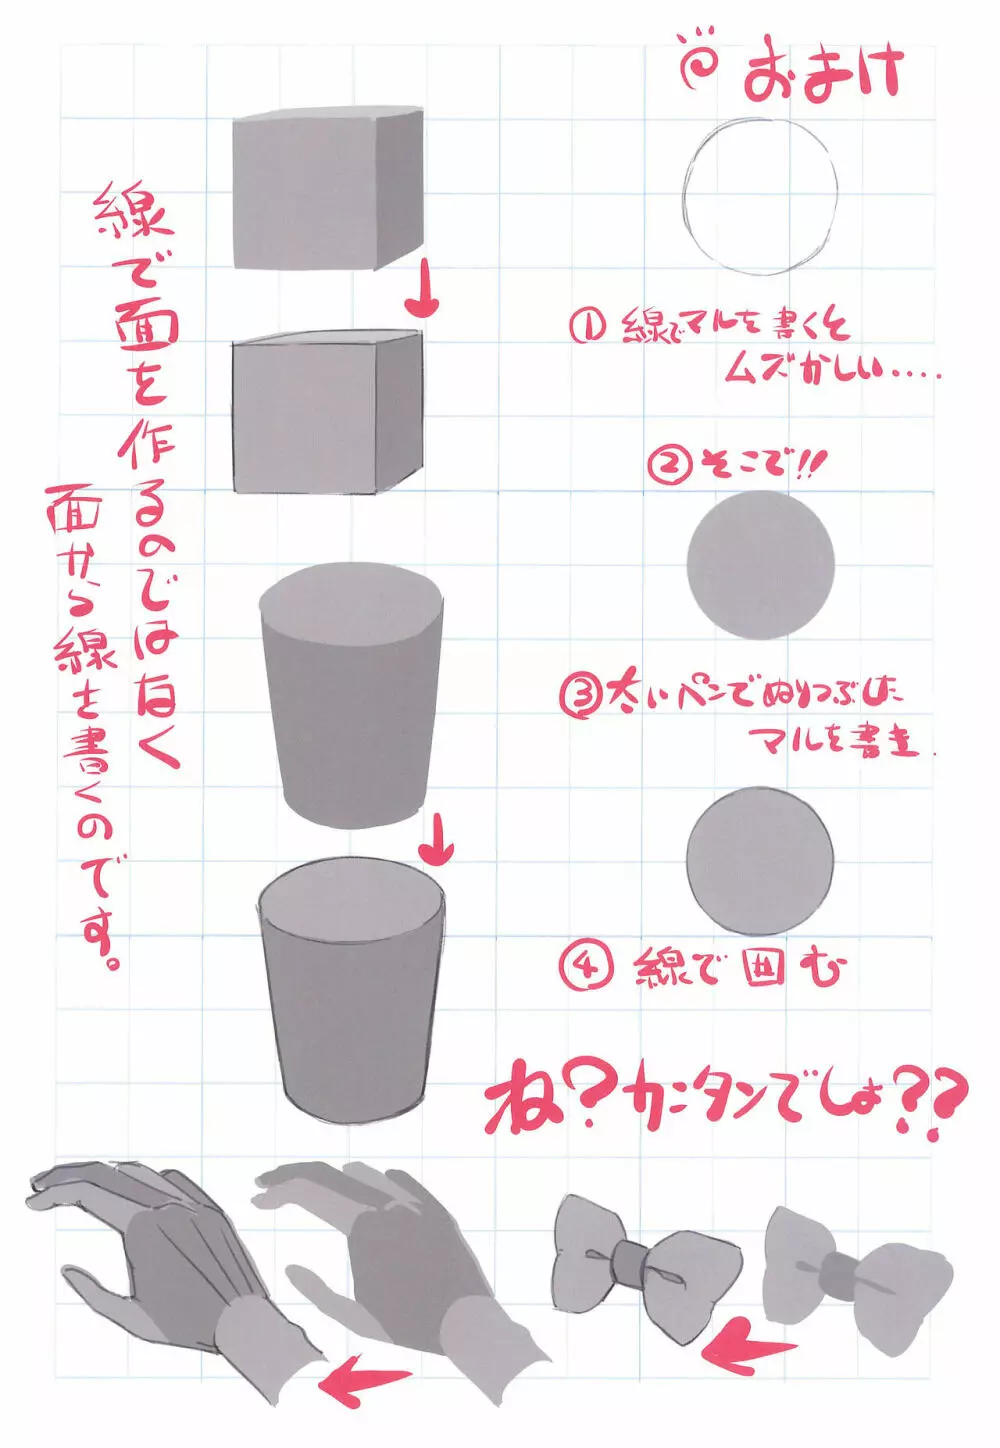 おまけ
① 線でマルを書くと
ムズかしい‥‥
② そこで!!
③ 太いペンでぬりつぶした
マルを書き.
④ 線で囲む
ね?カンタンでしょ??
線で面を作るのではなく
面から線を書くのです。